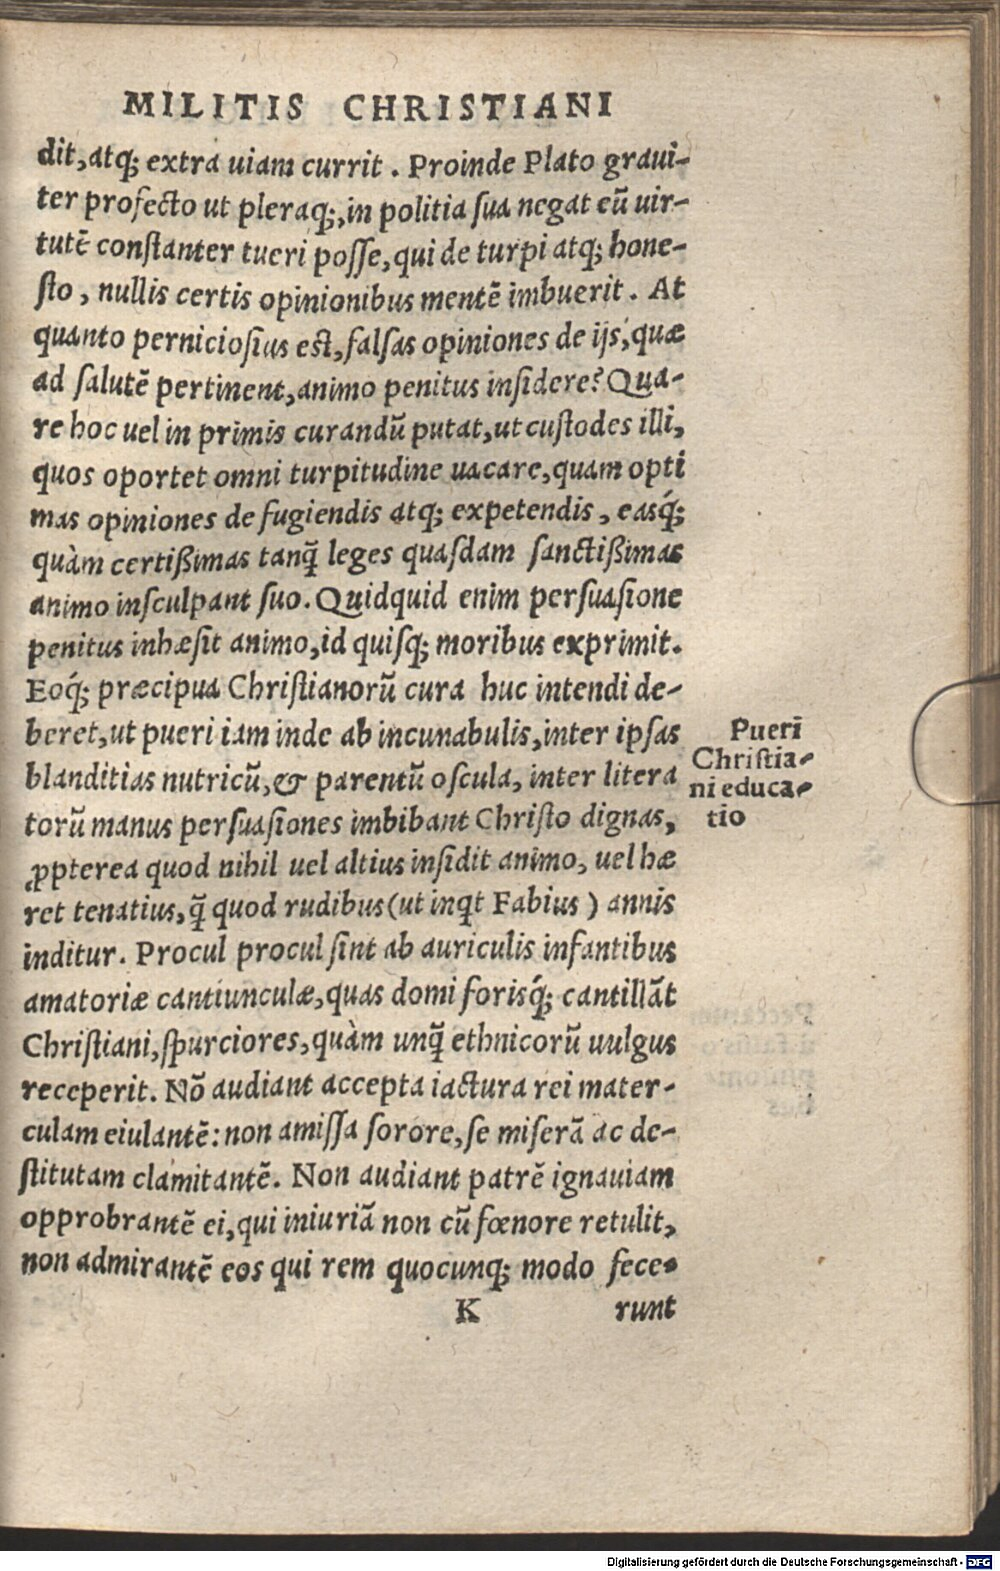 MILITIS CHRISTIANI
dit, atq; extra uiam currit. Proinde Plato graui-
ter profecto ut pleraq;, in politia sua negat eũ uir-
tutẽ constanter tueri posse, qui de turpi atq; hone-
sto, nullis certis opinionibus mentẽ imbuerit. At
quanto perniciosius est, falsas opiniones de ijs, quæ
ad salutẽ pertinent, animo penitus insidere? Qua-
re hoc uel in primis curandũ putat, ut custodes illi,
quos oportet omni turpitudine uacare, quam opti
mas opiniones de fugiendis atq; expetendis, easq́;
quàm certißimas tanq̃ leges quasdam sanctißimas
animo insculpant suo. Quidquid enim persuasione
penitus inhæsit animo, id quisq; moribus exprimit.
Eoq́; præcipua Christianorũ cura huc intendi de-
beret, ut pueri iam inde ab incunabulis, inter ipsas
blanditias nutricũ, & parentũ oscula, inter litera
torũ manus persuasiones imbibant Christo dignas,
ꝓpterea quod nihil uel altius insidit animo, uel hæ
ret tenatius, q̃ quod rudibus (ut inqt Fabius) annis
inditur. Procul procul sint ab auriculis infantibus
amatoriæ cantiunculæ, quas domi forisq́; cantillãt
Christiani, spurciores, quàm unq̃ ethnicorũ uulgus
receperit. Nõ audiant accepta iactura rei mater-
culam eiulantẽ: non amissa sorore, se miserã ac de-
stitutam clamitantẽ. Non audiant patrẽ ignauiam
opprobrantẽ ei, qui iniuriã non cũ fœnore retulit,
non admirantẽ eos qui rem quocunq; modo fece-
K runt
Pueri
Christia-
ni educa-
tio
Digitalisierung gefördert durch die Deutsche Forschungsgemeinschaft - DFG